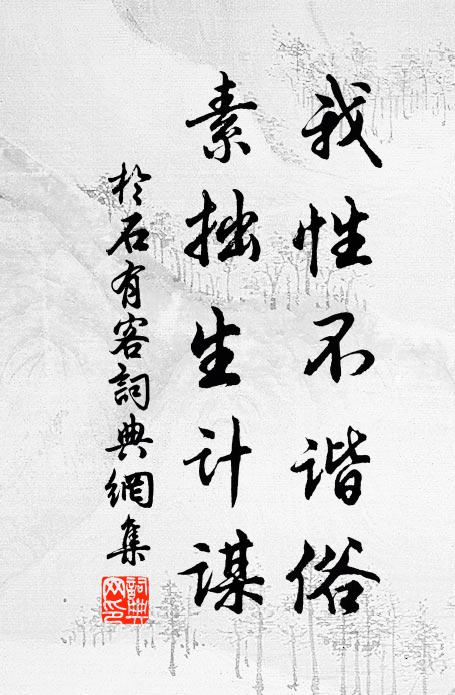 我性不谐俗
素拙生计谋
於石有客詞典網集
詞典网印